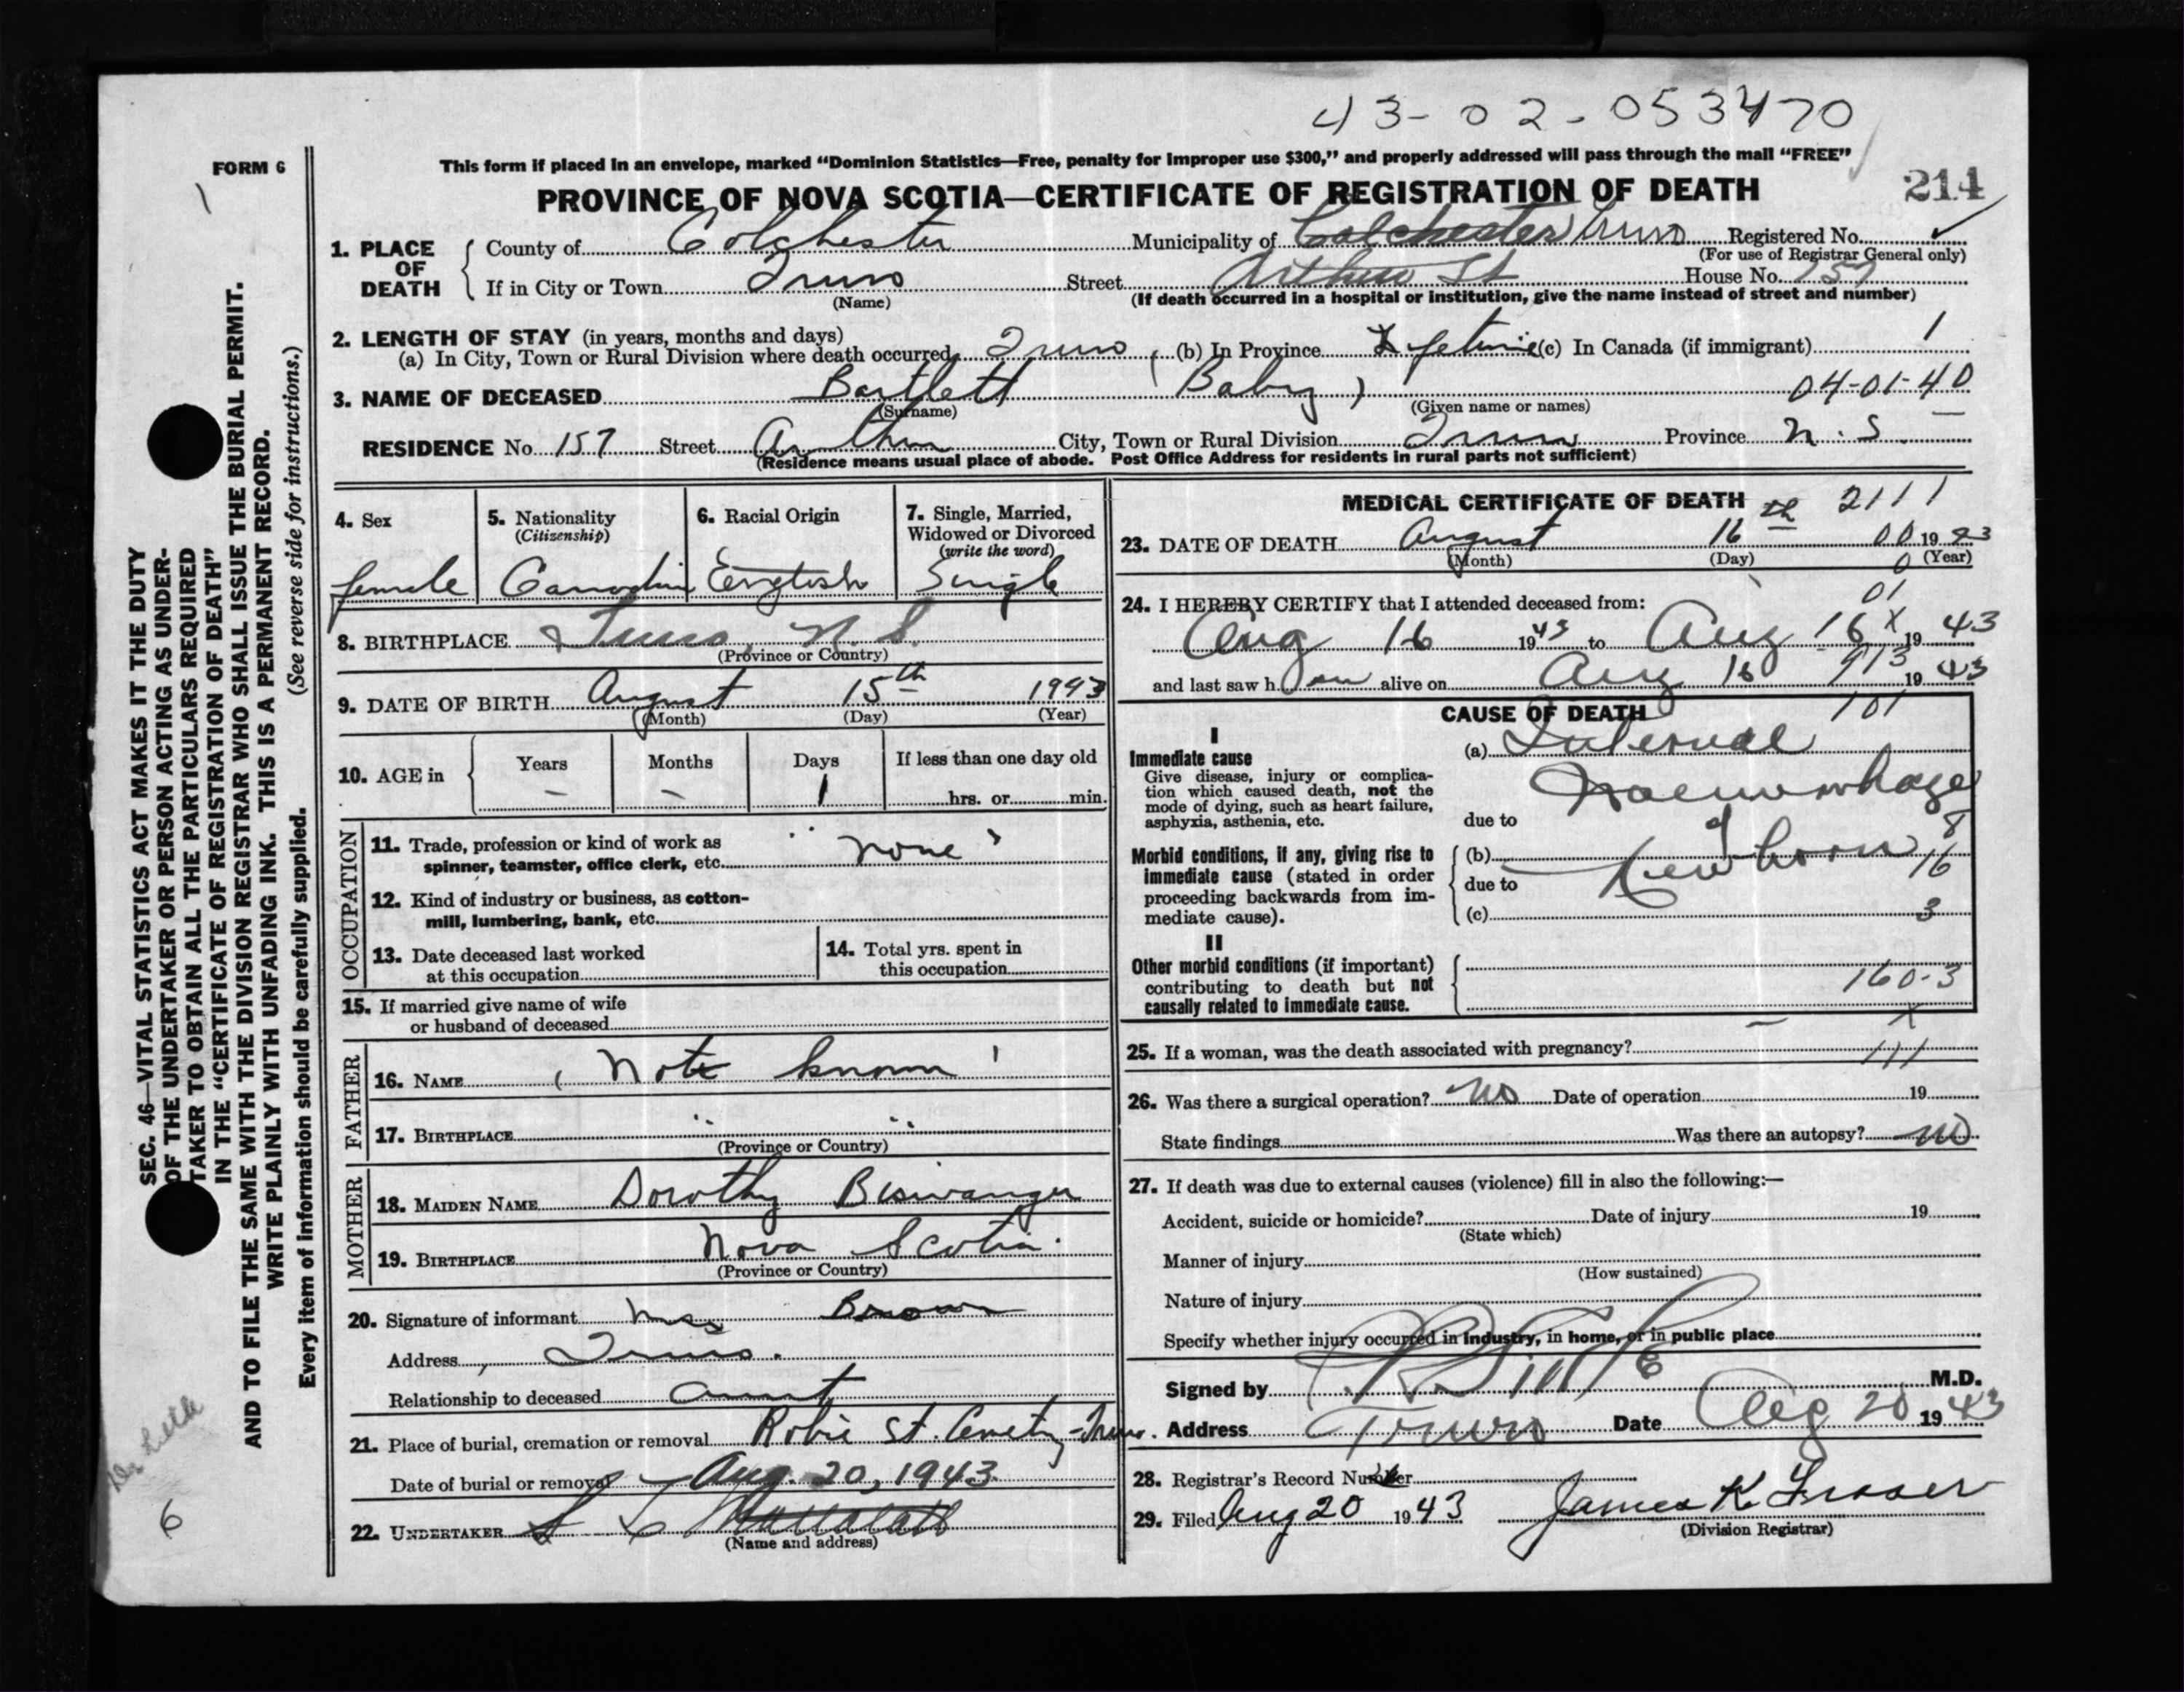 43-02-053470
FORM 6
1
This form if placed in an envelope, marked “Dominion Statistics—Free, penalty for improper use $300,” and properly addressed will pass through the mail “FREE”
PROVINCE OF NOVA SCOTIA—CERTIFICATE OF REGISTRATION OF DEATH
214
1. PLACE OF DEATH
County of Colchester Municipality of Colchester Truro Registered No.
(For use of Registrar General only)
If in City or Town Truro Street Arthur St House No. 157
(Name)
(If death occurred in a hospital or institution, give the name instead of street and number)
2. LENGTH OF STAY (in years, months and days)
(a) In City, Town or Rural Division where death occurred Truro (b) In Province Lifetime (c) In Canada (if immigrant) 1
3. NAME OF DECEASED Bartlett (Baby) 04-01-40
(Surname) (Given name or names)
RESIDENCE No. 157 Street Arthur City, Town or Rural Division Truro Province N.S.
(Residence means usual place of abode. Post Office Address for residents in rural parts not sufficient)
4. Sex
female
5. Nationality
(Citizenship)
Canadian
6. Racial Origin
English
7. Single, Married,
Widowed or Divorced
(write the word)
Single
8. BIRTHPLACE Truro, N.S.
(Province or Country)
9. DATE OF BIRTH August 15th 1943
(Month) (Day) (Year)
10. AGE in
Years Months Days If less than one day old
— — 1 hrs. or min.
OCCUPATION
11. Trade, profession or kind of work as
spinner, teamster, office clerk, etc. "none"
12. Kind of industry or business, as cotton-
mill, lumbering, bank, etc.
13. Date deceased last worked
at this occupation
14. Total yrs. spent in
this occupation
15. If married give name of wife
or husband of deceased
FATHER
16. NAME Not known
17. BIRTHPLACE " "
(Province or Country)
MOTHER
18. MAIDEN NAME Dorothy Biswanger
19. BIRTHPLACE Nova Scotia.
(Province or Country)
20. Signature of informant Mrs Brown
Address Truro.
Relationship to deceased aunt
21. Place of burial, cremation or removal Robie St. Cemetry - Truro.
Date of burial or removal Aug. 20, 1943
22. UNDERTAKER
(Name and address)
MEDICAL CERTIFICATE OF DEATH
2111
23. DATE OF DEATH August 16th 00 1943
(Month) (Day) 0 (Year)
01
24. I HEREBY CERTIFY that I attended deceased from:
Aug 16 1943 to Aug 16 X 1943
and last saw h er alive on Aug 16 913 1943
CAUSE OF DEATH
101
I
Immediate cause
Give disease, injury or complica-
tion which caused death, not the
mode of dying, such as heart failure,
asphyxia, asthenia, etc.
(a) Internal
Haemorrhage
due to of
8
Morbid conditions, if any, giving rise to
immediate cause (stated in order
proceeding backwards from im-
mediate cause).
(b) Newborn
16
due to
(c) 3
II
Other morbid conditions (if important)
contributing to death but not
causally related to immediate cause.
160-3
X
25. If a woman, was the death associated with pregnancy? —
111
26. Was there a surgical operation? No Date of operation 19
State findings Was there an autopsy? No
27. If death was due to external causes (violence) fill in also the following:—
Accident, suicide or homicide? Date of injury 19
(State which)
Manner of injury
(How sustained)
Nature of injury
Specify whether injury occurred in industry, in home, or in public place
Signed by M.D.
Address Truro Date Aug 20 1943
28. Registrar's Record Number
29. Filed Aug 20 1943 James K. Fraser
(Division Registrar)
SEC. 46—VITAL STATISTICS ACT MAKES IT THE DUTY
OF THE UNDERTAKER OR PERSON ACTING AS UNDER-
TAKER TO OBTAIN ALL THE PARTICULARS REQUIRED
IN THE “CERTIFICATE OF REGISTRATION OF DEATH”
AND TO FILE THE SAME WITH THE DIVISION REGISTRAR WHO SHALL ISSUE THE BURIAL PERMIT.
WRITE PLAINLY WITH UNFADING INK. THIS IS A PERMANENT RECORD.
Every item of information should be carefully supplied. (See reverse side for instructions.)
6